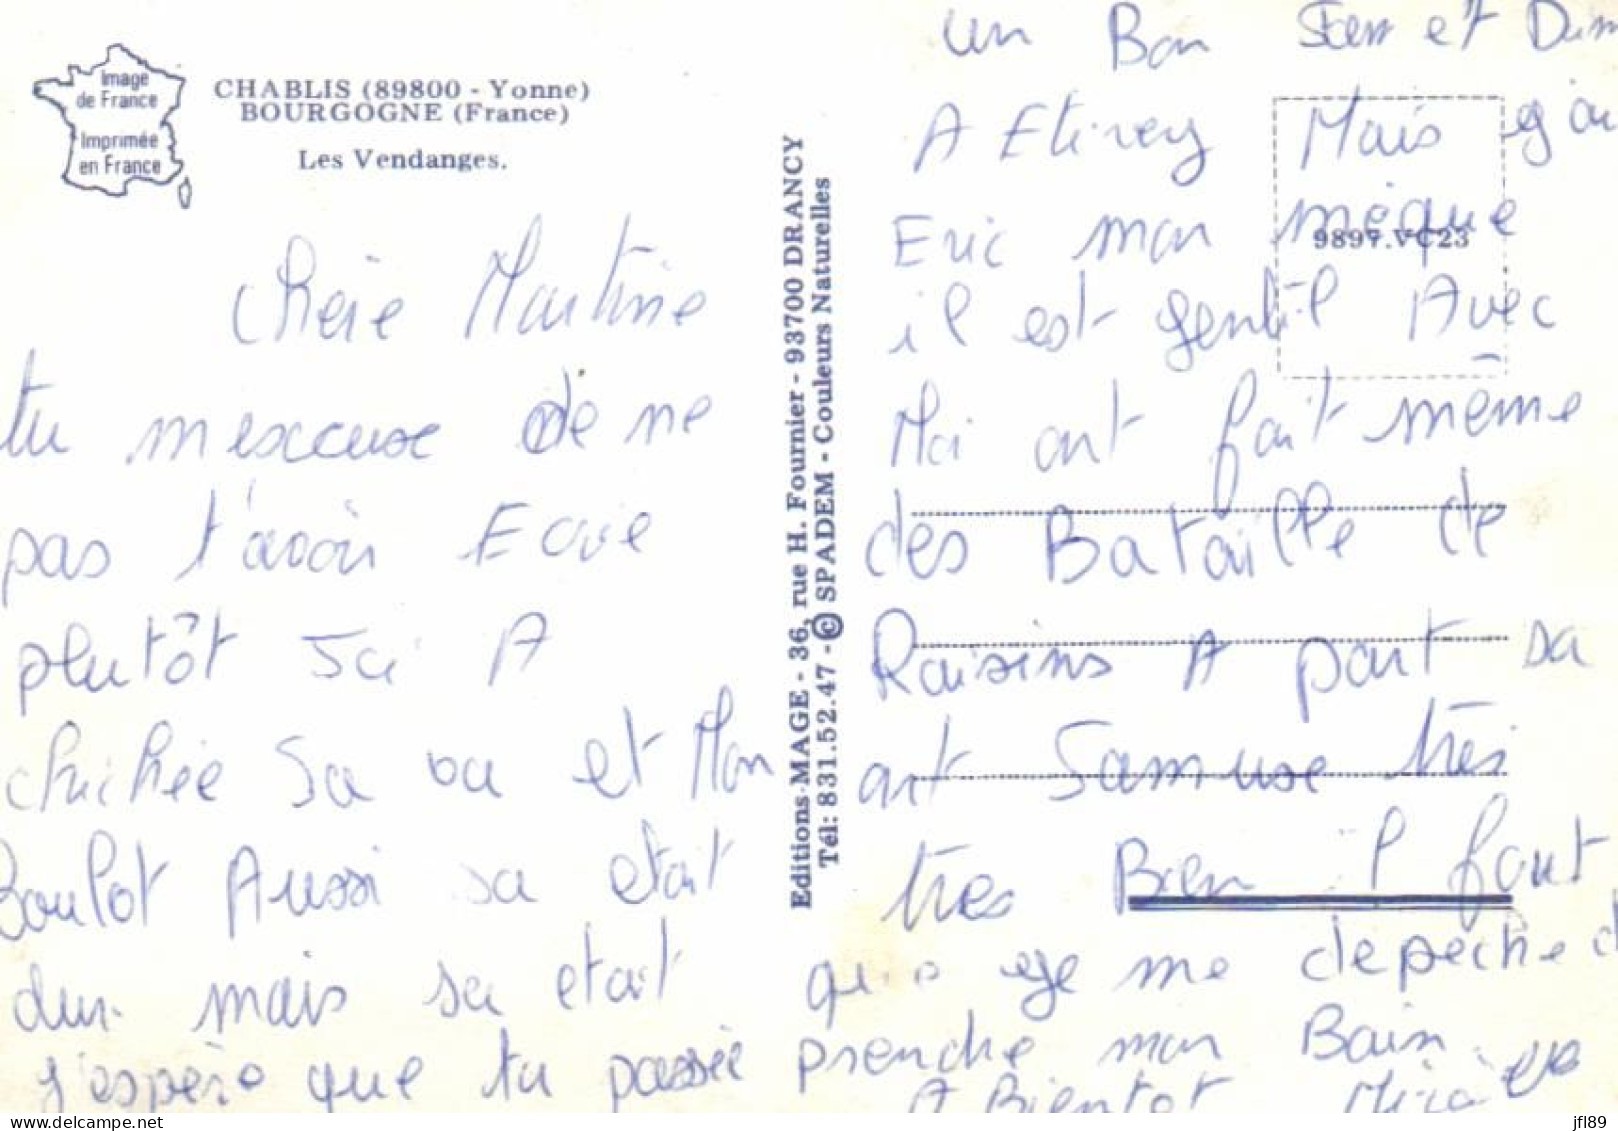 Image
de France
Imprimée
en France
CHABLIS (89800 - Yonne)
BOURGOGNE (France)
Les Vendanges.
chère Martine
tu mexcuse de ne
pas t'avoir Ecrie
plutôt Sai A
chichée Sa va et Mon
Boulot Aussi sa etait
dur mais sa etait
j'espère que tu passée
Editions MAGE - 36, rue H. Fournier - 93700 DRANCY
Tél: 831.52.47 - © SPADEM - Couleurs Naturelles
un Bon Sam et Dim
A Etivey Mais
9897.VC23
Eric mon mèque
il est gentil Avec
Moi ont fait même
des Bataille de
Raisins A part sa
ont Samuse très
tres Bien il faut
que ge me depeche d
prendre mon Bain.
A Bientot
jfl89